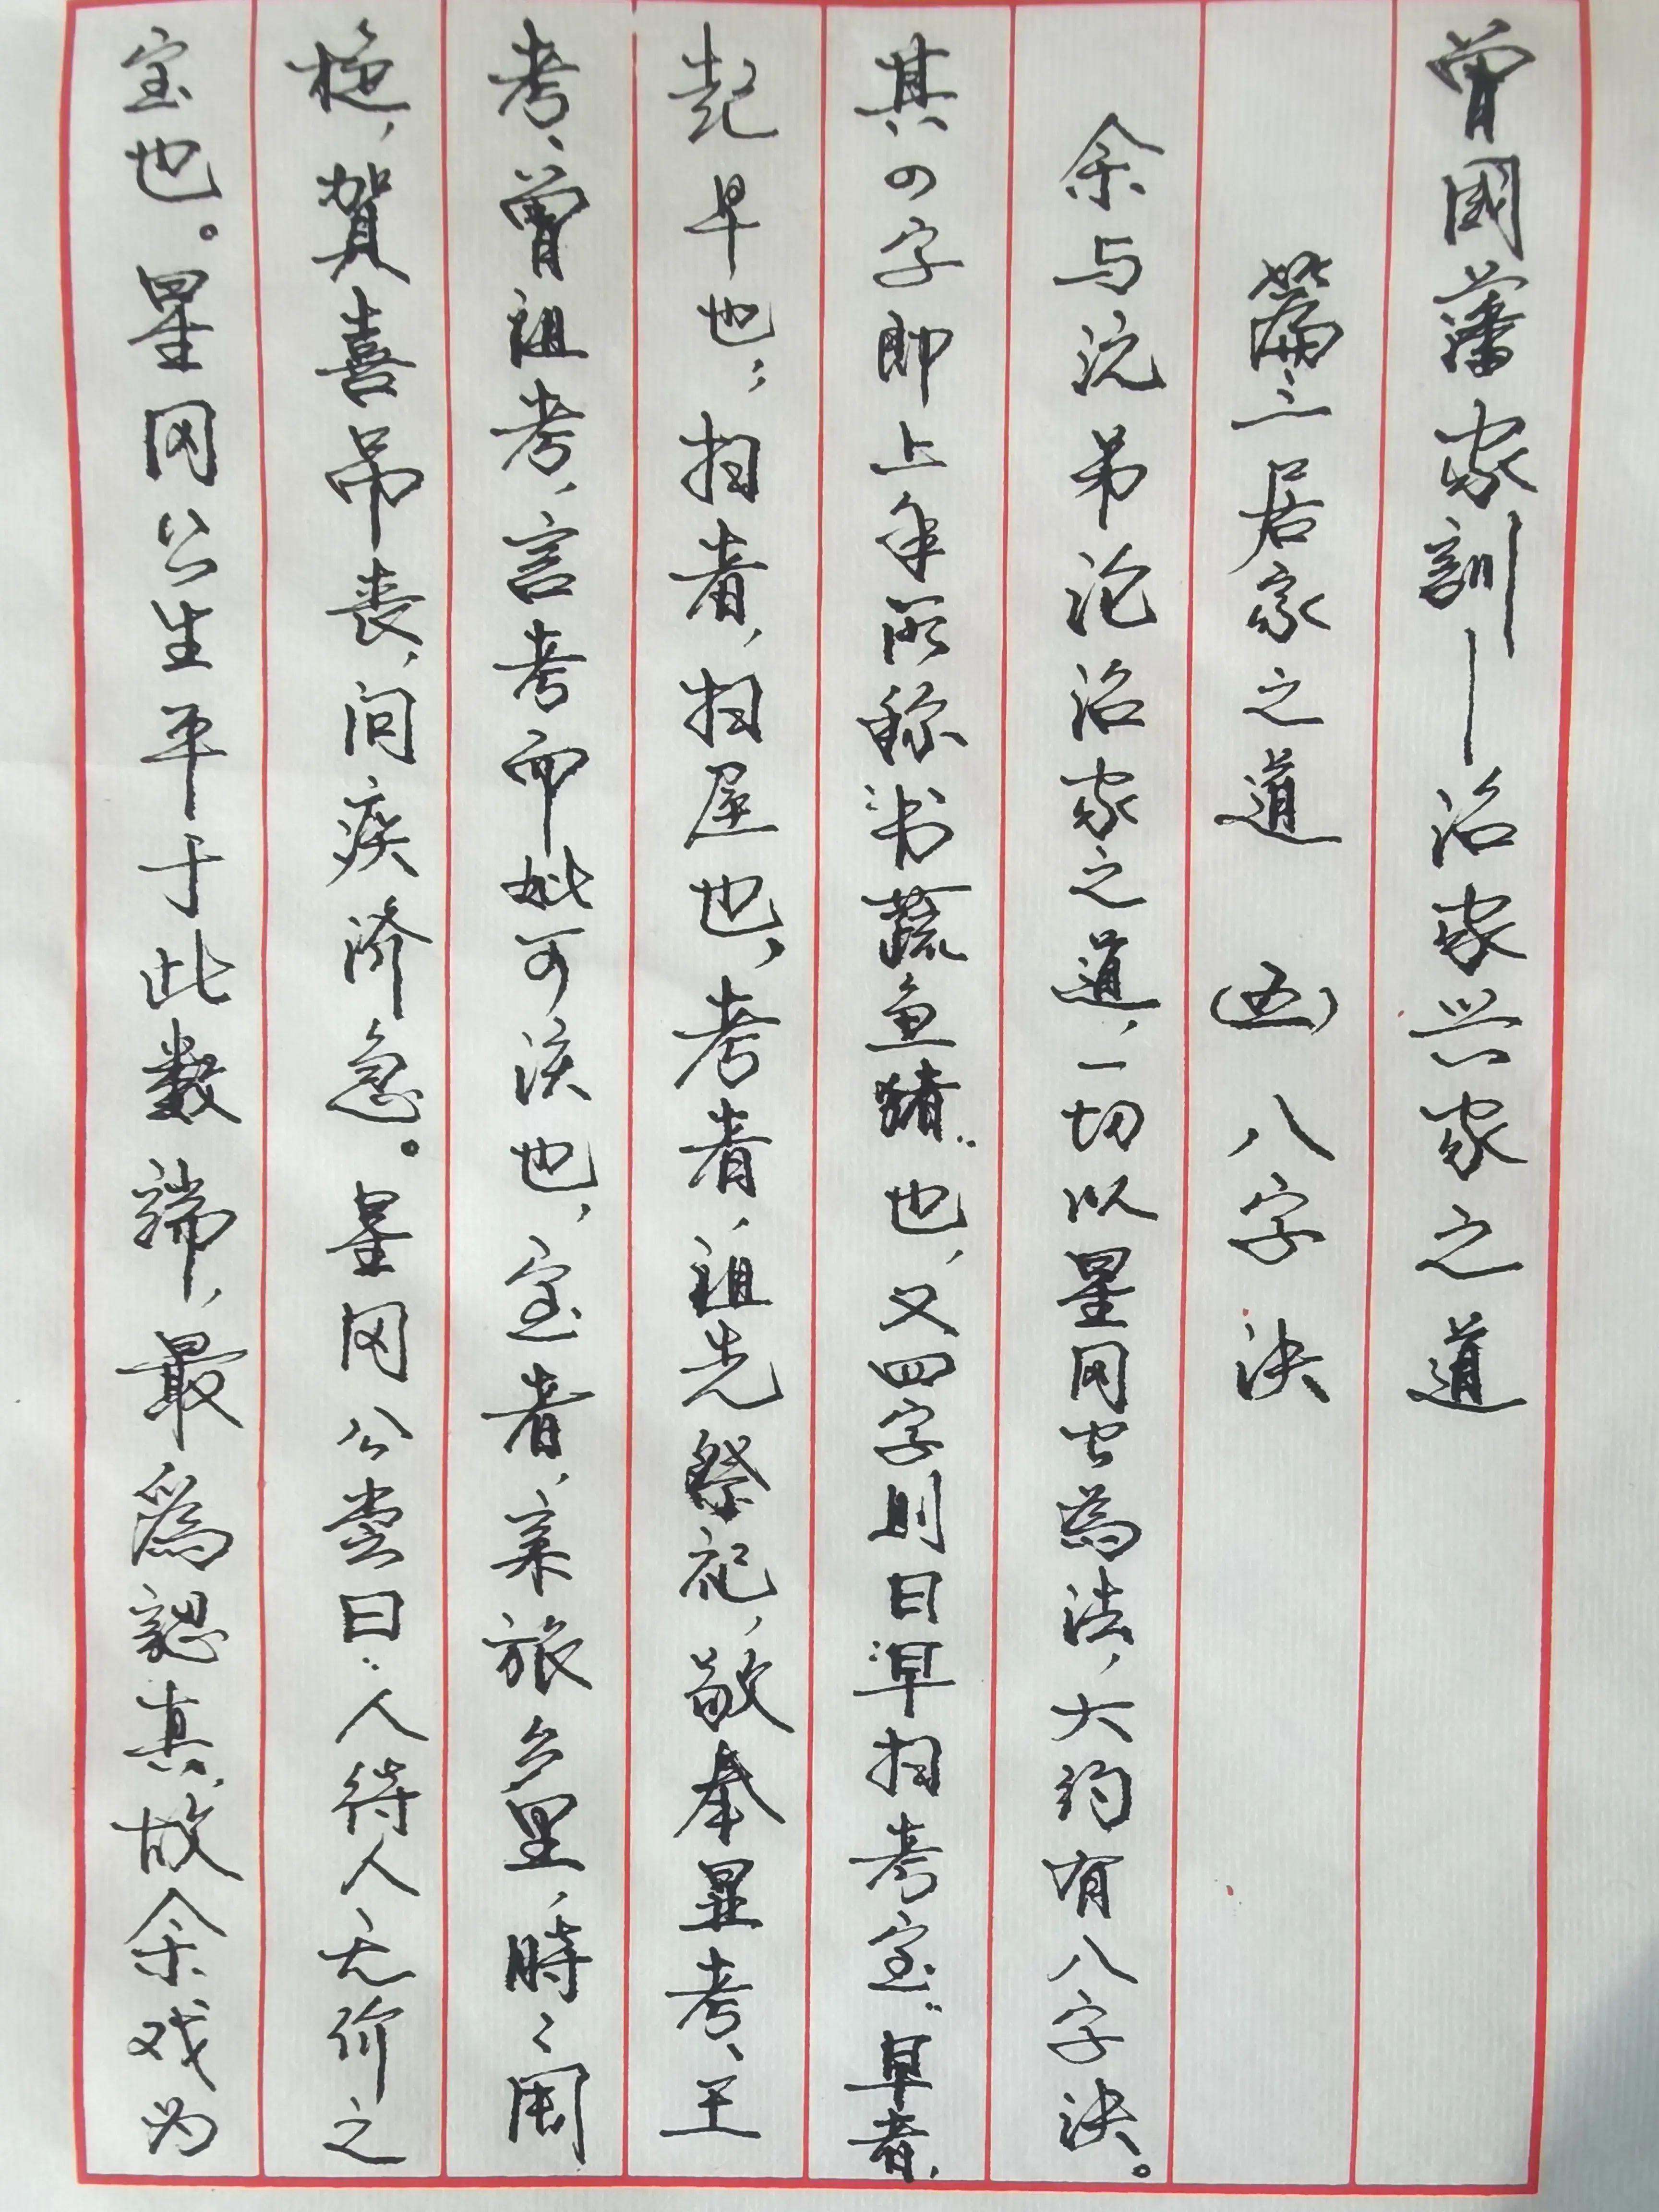 曾國藩家訓——治家兴家之道
篇三居家之道 (五) 八字決
余与沅弟论治家之道，一切以星冈公為法，大约有八字決。
其四字即上年所称"书蔬鱼猪"也，又四字则曰"早扫考宝"。早者，
起早也；扫者，扫屋也，考者，祖先祭祀，敬奉显考、王
考、曾祖考，言考而妣可该也，宝者，亲族乡里，時々周
旋，賀喜吊丧，问疾济急。星冈公尝曰：人待人无价之
宝也。星冈公生平于此数端，最爲認真，故余戏为